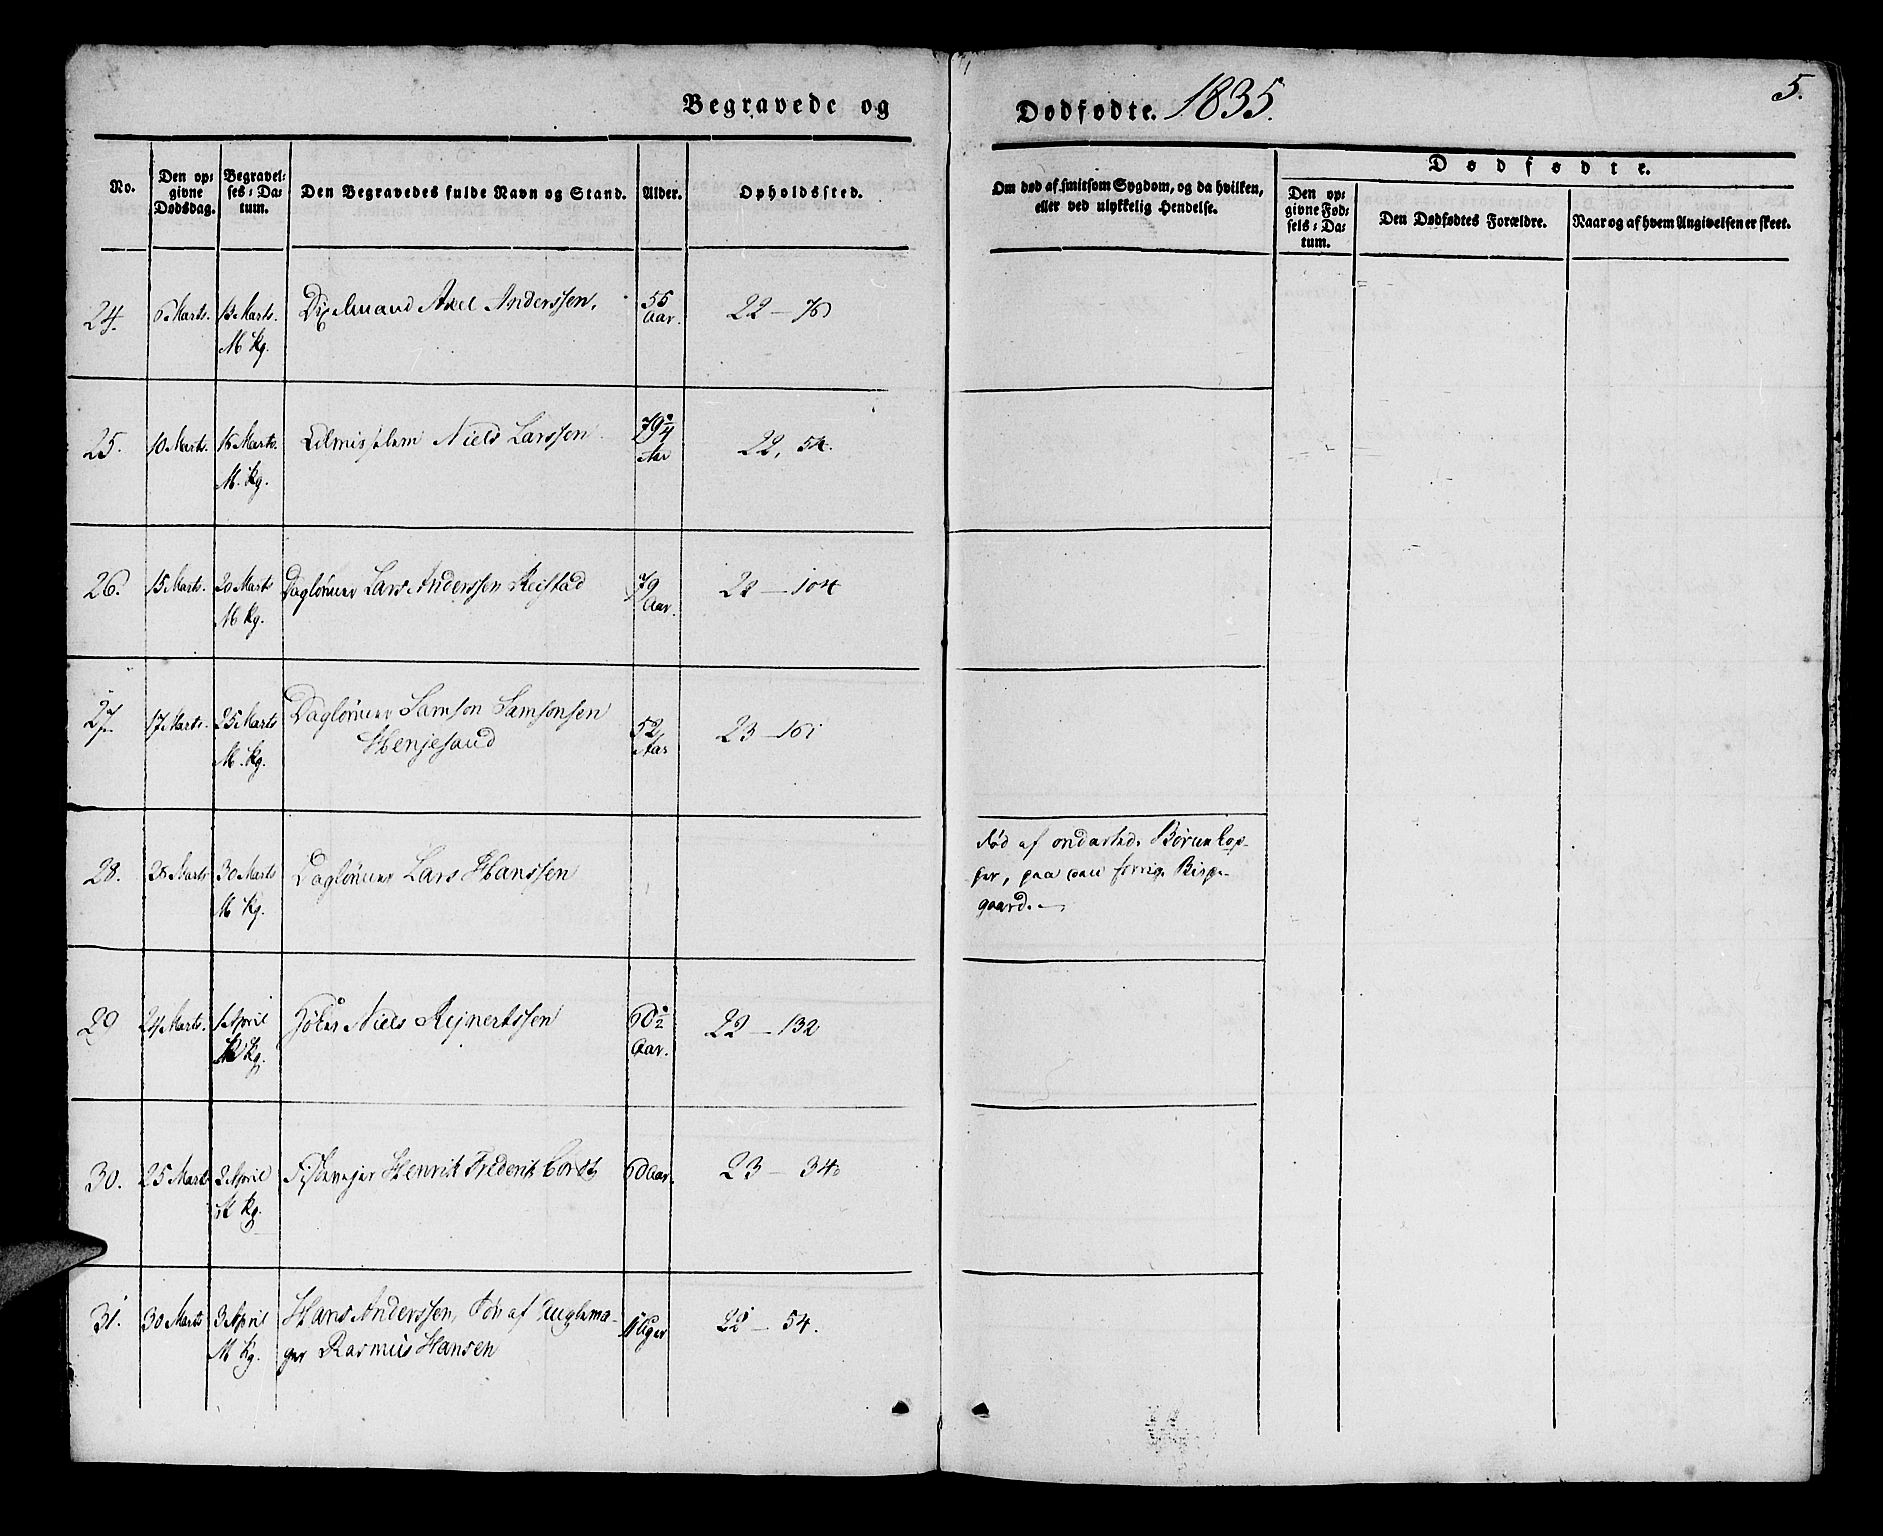 Begravede og Dødfødte. 1835.
5.
No.
Den opgivne Dødsdag.
Begravelses-Datum.
Den Begravedes fulde Navn og Stand.
Alder.
Opholdssted.
Om død af smitsom Sygdom, og da hvilken,
eller ved ulykkelig Hendelse.
Dødfødte.
Den opgivne Fødsels-Datum.
Den Dødfødtes Forældre.
Naar og af hvem Angivelsen er skeet.
24. 6 Marts. 12 Marts. Axel Anderssen. 55 22 — 76
M Kg. Aar.
25. 10 Marts. 16 Marts. Niels Larssen 79 3/4 22, 54.
M. Kg. Aar
26. 15 Marts. 20 Marts Dagløner Lars Anderssen Reistad 79 22 — 104
M Kg. Aar.
27. 17 Marts. 25 Marts Dagløner Samson Samsonsen 52 23 — 161
M. Kg. Henjesand Aar
28. 28 Marts 30 Marts Dagløner Lars Hanssen død af ondartede Børnekop-
M Kg. per, paa den forrige Bispe-
gaard. —
29 24 Marts. 1 April Niels Rejnertssen 60 1/2 22 — 132
Kg. Aar.
30. 25 Marts 2 April Henrik Frederik Cordtz 60 Aar. 23 — 34
Kg.
31. 30 Marts 3 April Hans Anderssen, Søn af Auglema- 11 Uger 22 — 54.
M Kg. ger Rasmus Hansen